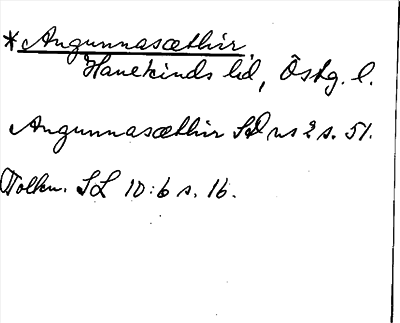 *Angunnasæthir
Hanekinds hd, Östg. l.
Angunnasæthir SD ns 2 s. 51.
Tolkn. SL 10:6 s. 16.